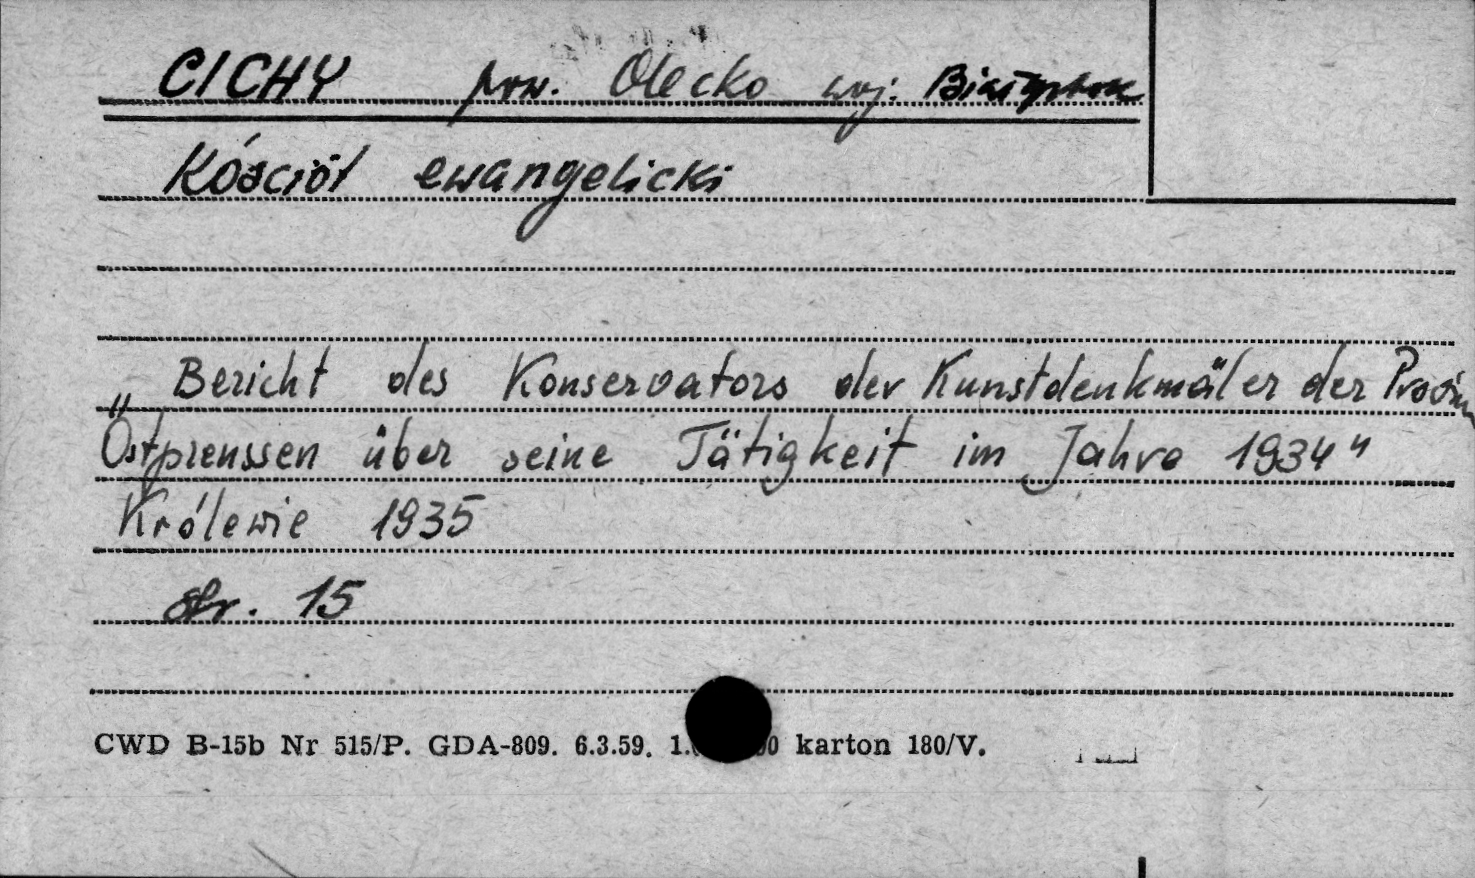 CICHY pow. Olecko woj. Białystok
Kościół ewangelicki
„Bericht des Konservators der Kunstdenkmäler der Provinz
Ostpreussen über seine Tätigkeit im Jahre 1934"
Królewie 1935
str. 15
CWD B-15b Nr 515/P. GDA-809. 6.3.59. karton 180/V.